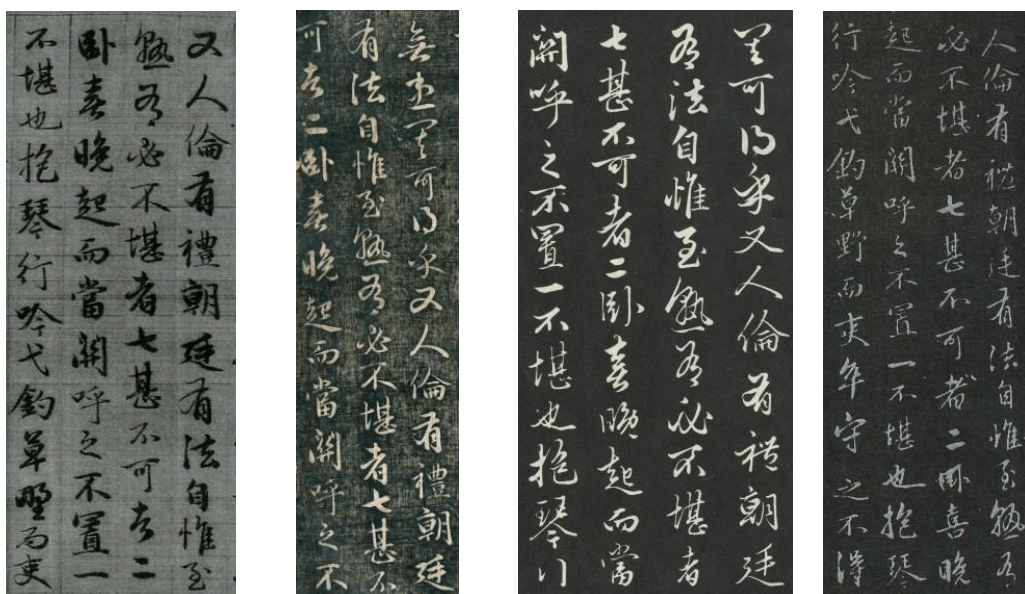 又人倫有禮朝廷有法自惟至
熟有必不堪者七甚不可者二
臥喜晚起而當關呼之不置一
不堪也抱琴行吟弋釣草野而吏
無患其可得乎又人倫有禮朝廷
有法自惟至熟有必不堪者七甚不
可者二臥喜晚起而當關呼之不
其可得乎又人倫有禮朝廷
有法自惟至熟有必不堪者
七甚不可者二臥喜晚起而當
關呼之不置一不堪也抱琴行
人倫有禮朝廷有法自惟至熟有
必不堪者七甚不可者二臥喜晚
起而當關呼之不置一不堪也抱琴
行吟弋釣草野而吏卒守之不得